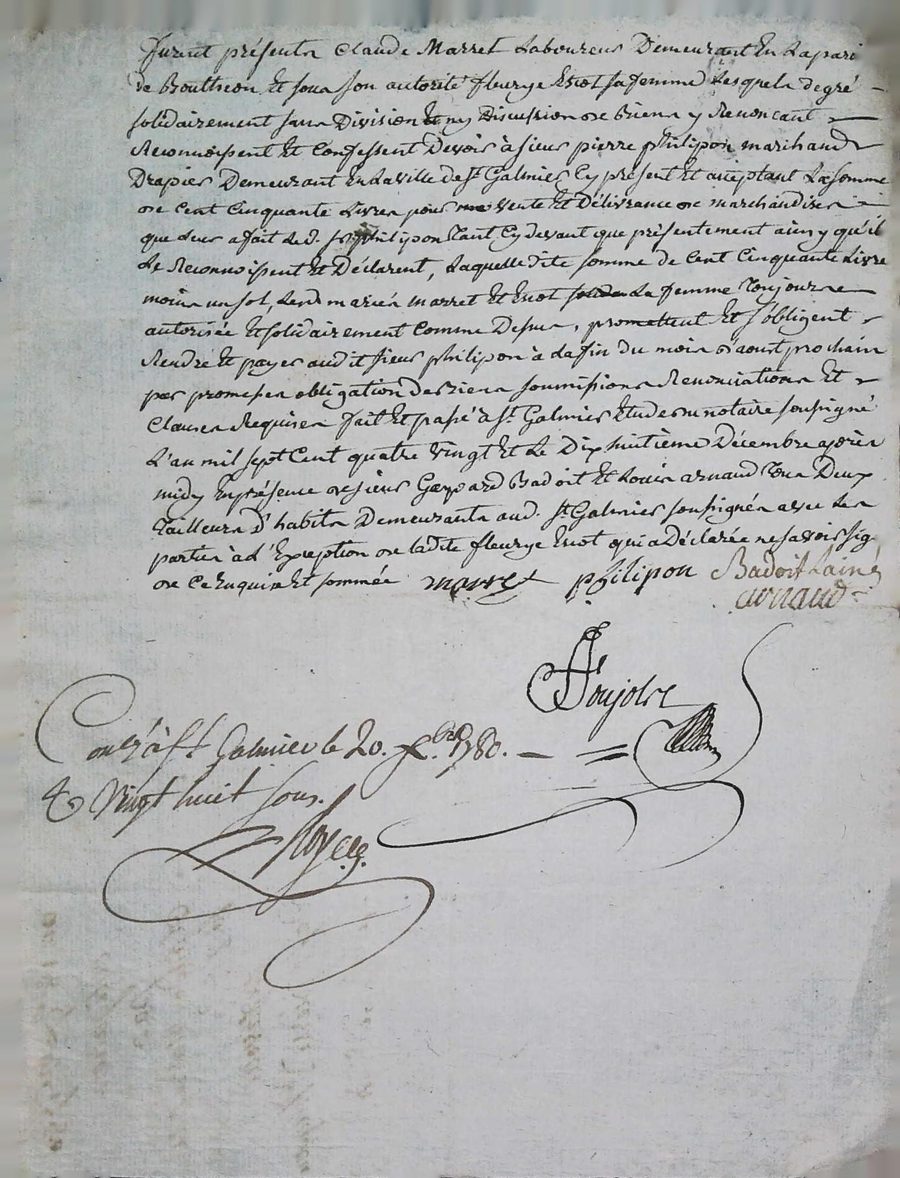 furent présents Claude Marret Laboureur Demeurant En La parr
de Bouthéon Et sous son autorité fleurye Eniot sa femme Lesquels de gré
solidairement sans Division Et ny Discussion de biens y Renoncant
Reconnoissent Et Confessent Devoir à sieur pierre philipon marchand
Drapier Demeurant En La ville de St Galmier Cy présent Et acceptant La somme
de cent Cinquante Livres pour vente Et Délivrance de marchandises
que Leur a fait Led. Sr philipon Tant Cy devant que présentement ainsy qu'il
Le Reconnoissent Et Déclarent, Laquelle dite somme de Cent Cinquante Livre
moins un sol, Lesd mariés marret Et Eniot La femme Toujours
autorisée Et solidairement Comme Dessus, promettent Et s'obligent
Rendre Et payer audit sieur philipon à La fin du mois d'aoust prochain
par promesses obligation de Biens soumissions Renonciations Et
Clauses Requises fait Et passé à St Galmier Etude du notaire soussigné
L'an mil sept Cent quatre vingt Et Le Dix huitième Décembre après
midy En présence de sieurs Gaspard Badoit Et Louis arnaud Tous Deux
Tailleurs D'habits Demeurants aud. St Galmier soussignés avec Les
parties à L'Exception de ladite fleurye Eniot qui a Déclarée ne savoir sig
de ce Enquise Et sommée marret philipon Badoit Lainé
arnaud
Ponjolse
Contlé à St Galmier le 20. Xbre 1780.
Vingt huit sous.